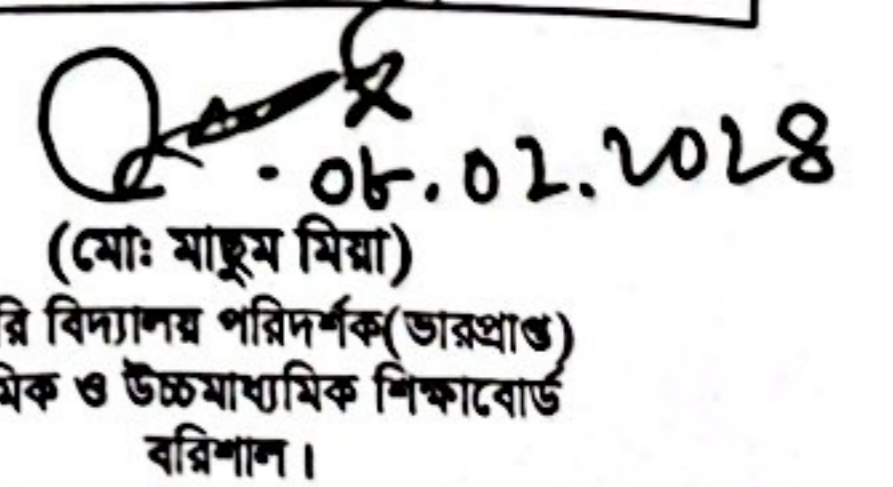 ০৮.০২.২০২৪
(মোঃ মাছুম মিয়া)
রি বিদ্যালয় পরিদর্শক(ভারপ্রাপ্ত)
মিক ও উচ্চমাধ্যমিক শিক্ষাবোর্ড
বরিশাল।